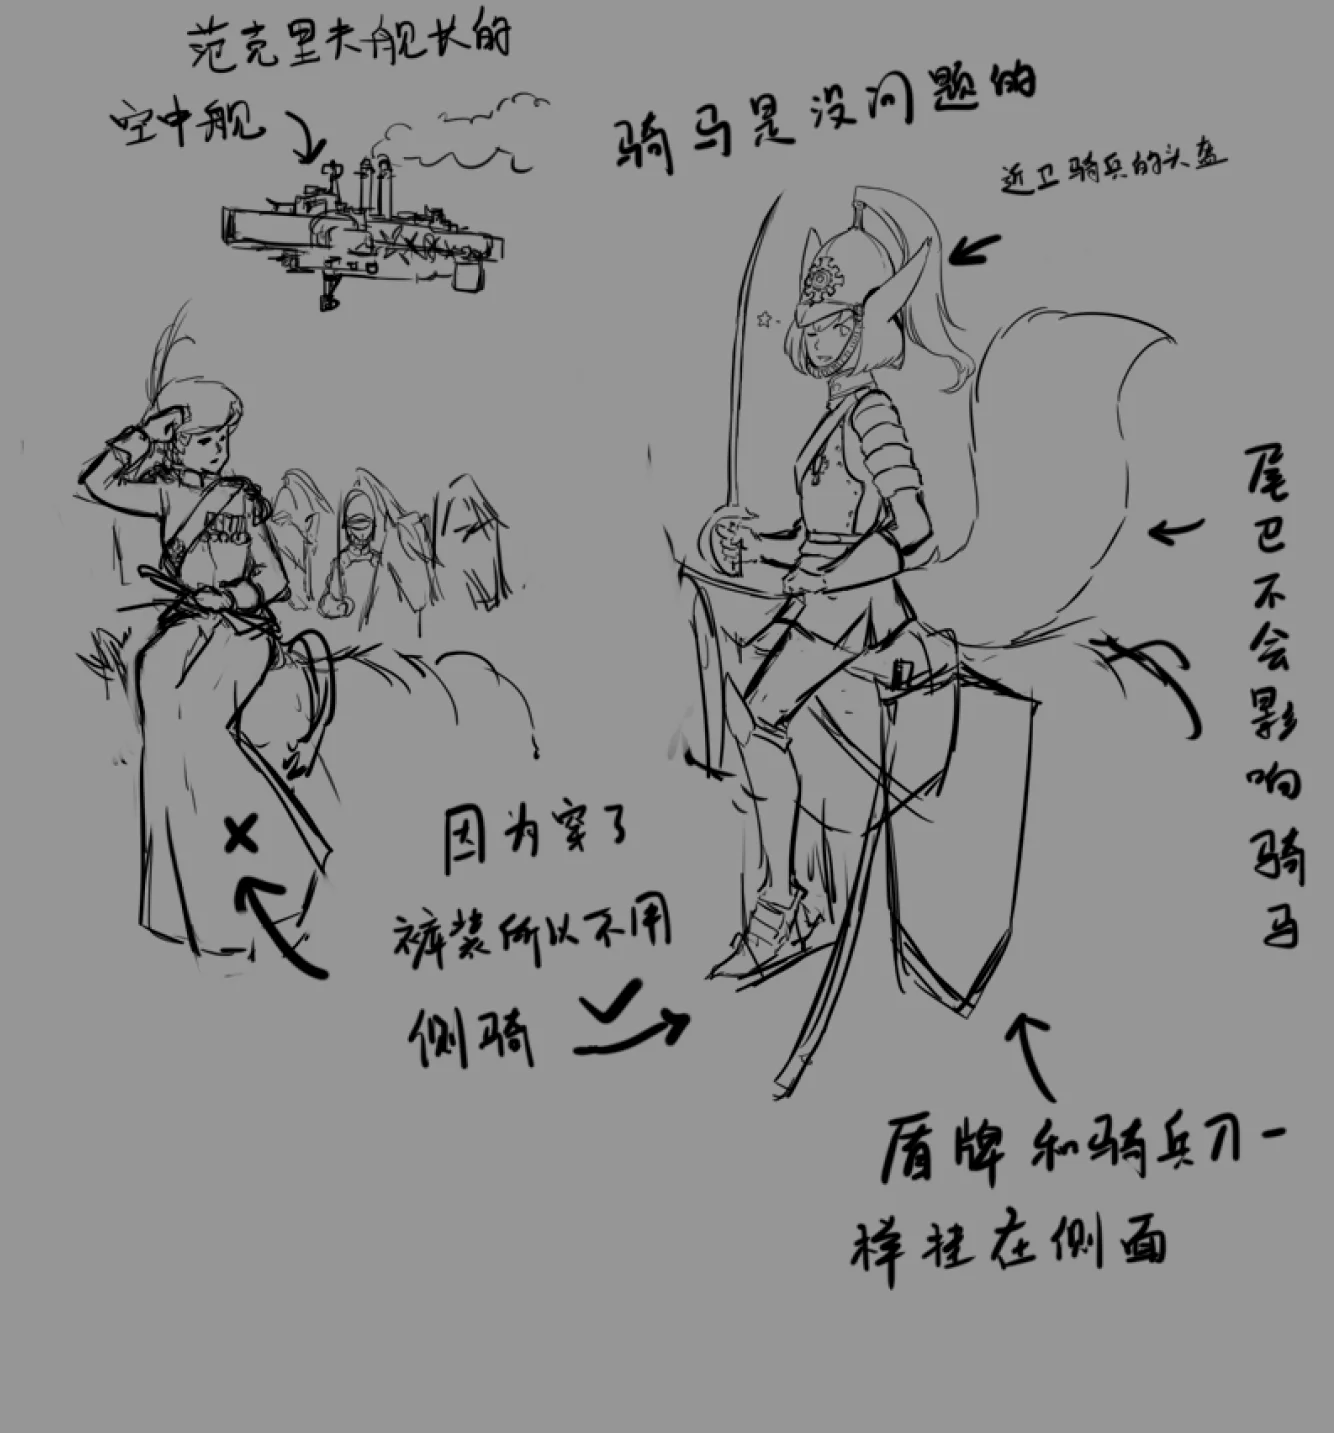 范克里夫舰长的
空中舰
骑马是没问题的
近卫骑兵的头盔
尾巴不会影响骑马
因为穿了
裤装所以不用
侧骑
盾牌和骑兵刀一
样挂在侧面